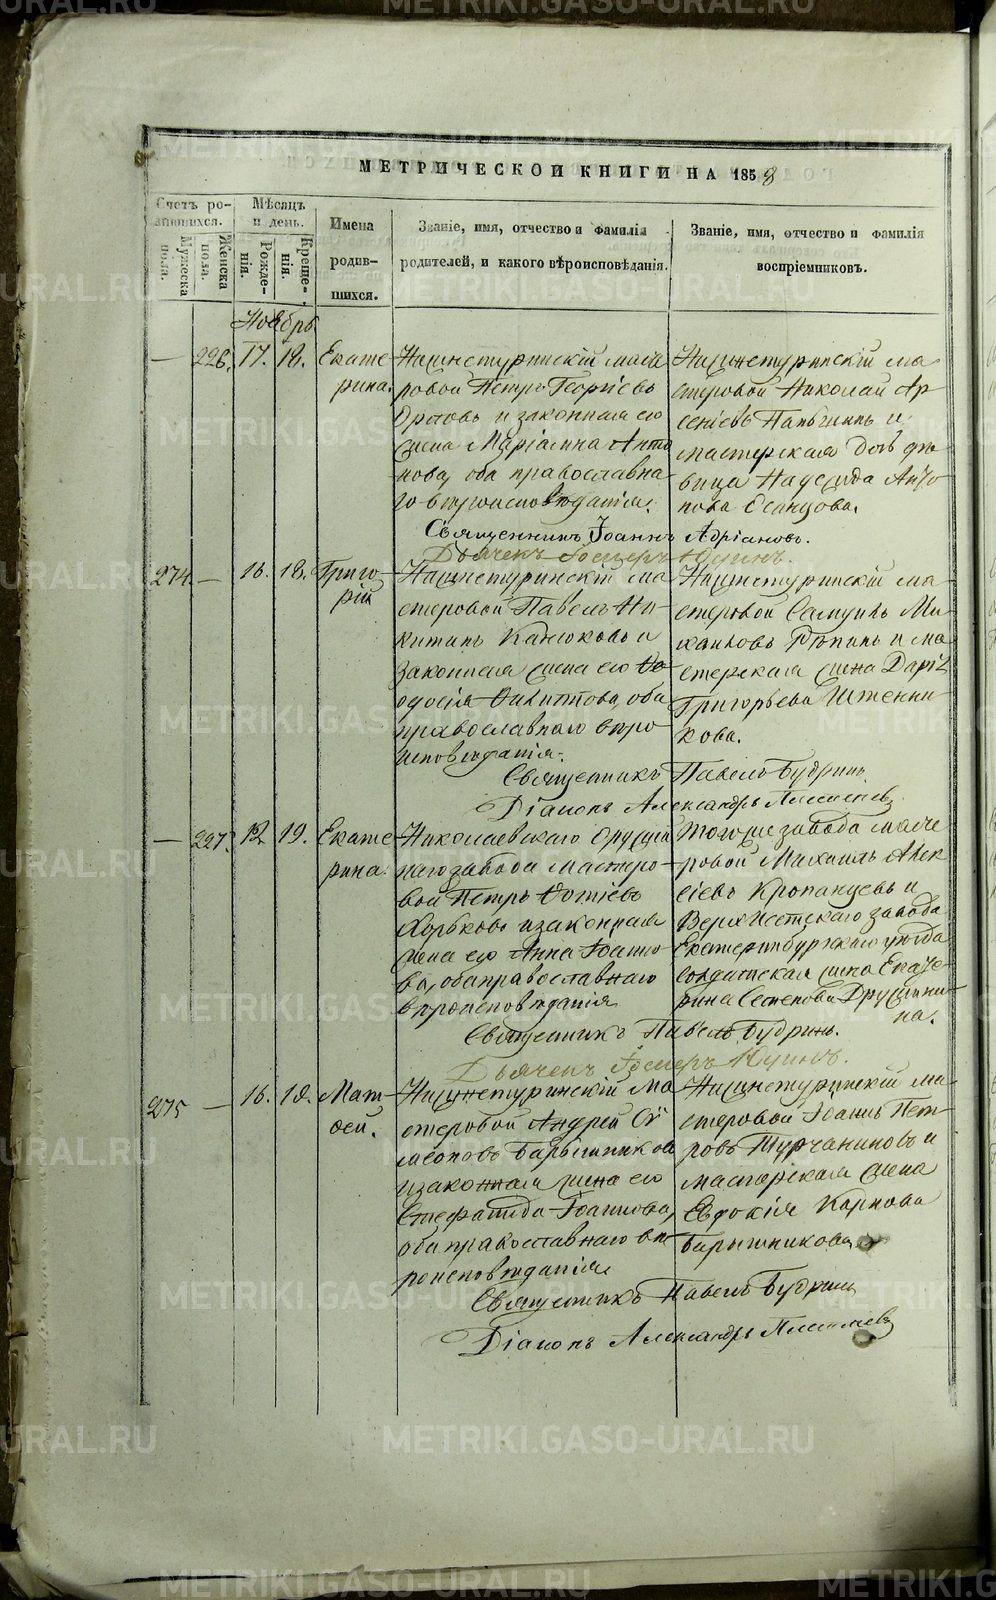 МЕТРИЧЕСКОЙ КНИГИ НА 1858
Счетъ ро-
дившихся.
Мужеска
пола.
Женска
пола.
Мѣсяцъ
и день.
Рожде-
нія.
Креще-
нія.
Имена
родив-
шихся.
Званіе, имя, отчество и фамилія
родителей, и какого вѣроисповѣданія.
Званіе, имя, отчество и фамилія
воспріемниковъ.
Ноябрь
— 226. 17. 18. Екате
рина.
Нижнетуринскій масте
ровой Петръ Георгіевъ
Орловъ и законная его
жена Маріамна Анто
нова, оба православна
го вѣроисповѣданія.
Нижнетуринскій ма
стеровой Николай Ар
сеніевъ и
мастерская дочь дѣ
вица Надежда Анто
нова
Священникъ Іоаннъ Адріановъ.
Дьячекъ
274. — 16. 18. Григо-
рій
Нижнетуринскій ма
стеровой Павелъ Ни-
китинъ и
законная жена его Ѳе
одосія Филиппова, оба
православнаго вѣро
исповѣданія.
Нижнетуринскій ма
стеровой Самуилъ Ми
хаиловъ Рѣпинъ и ма
стерская жена Дарія
Григорьева
кова.
Священникъ Павелъ Будринъ.
Діаконъ Александръ
— 227. 12. 19. Екате
рина.
Николаевскаго оружей
наго завода мастеро-
вой Петръ Фотіевъ
Хорьковъ и законная
жена его Анна Іоанно
ва, оба православнаго
вѣроисповѣданія
Тогоже завода масте
ровой Михаилъ Алек
сіевъ Кропачевъ и
Верхъ Исетскаго завода
Екатеринбургскаго уѣзда
солдатская жена Екате-
рина Семенова Дружини
на.
Священникъ Павелъ Будринъ.
Дьячекъ
275 — 16. 18. Мат-
ѳей.
Нижнетуринскій ма
стеровой Андрей Си
меоновъ Барышниковъ
и законная жена его
Стефанида Іоаннова,
оба православнаго вѣ
роисповѣданія
Нижнетуринскій ма-
стеровой Іоаннъ Пет-
ровъ Турчаниновъ и
мастерская жена
Евдокія Карпова
Барышникова
Священникъ Павелъ Будринъ
Діаконъ Александръ
METRIKI.GASO-URAL.RU